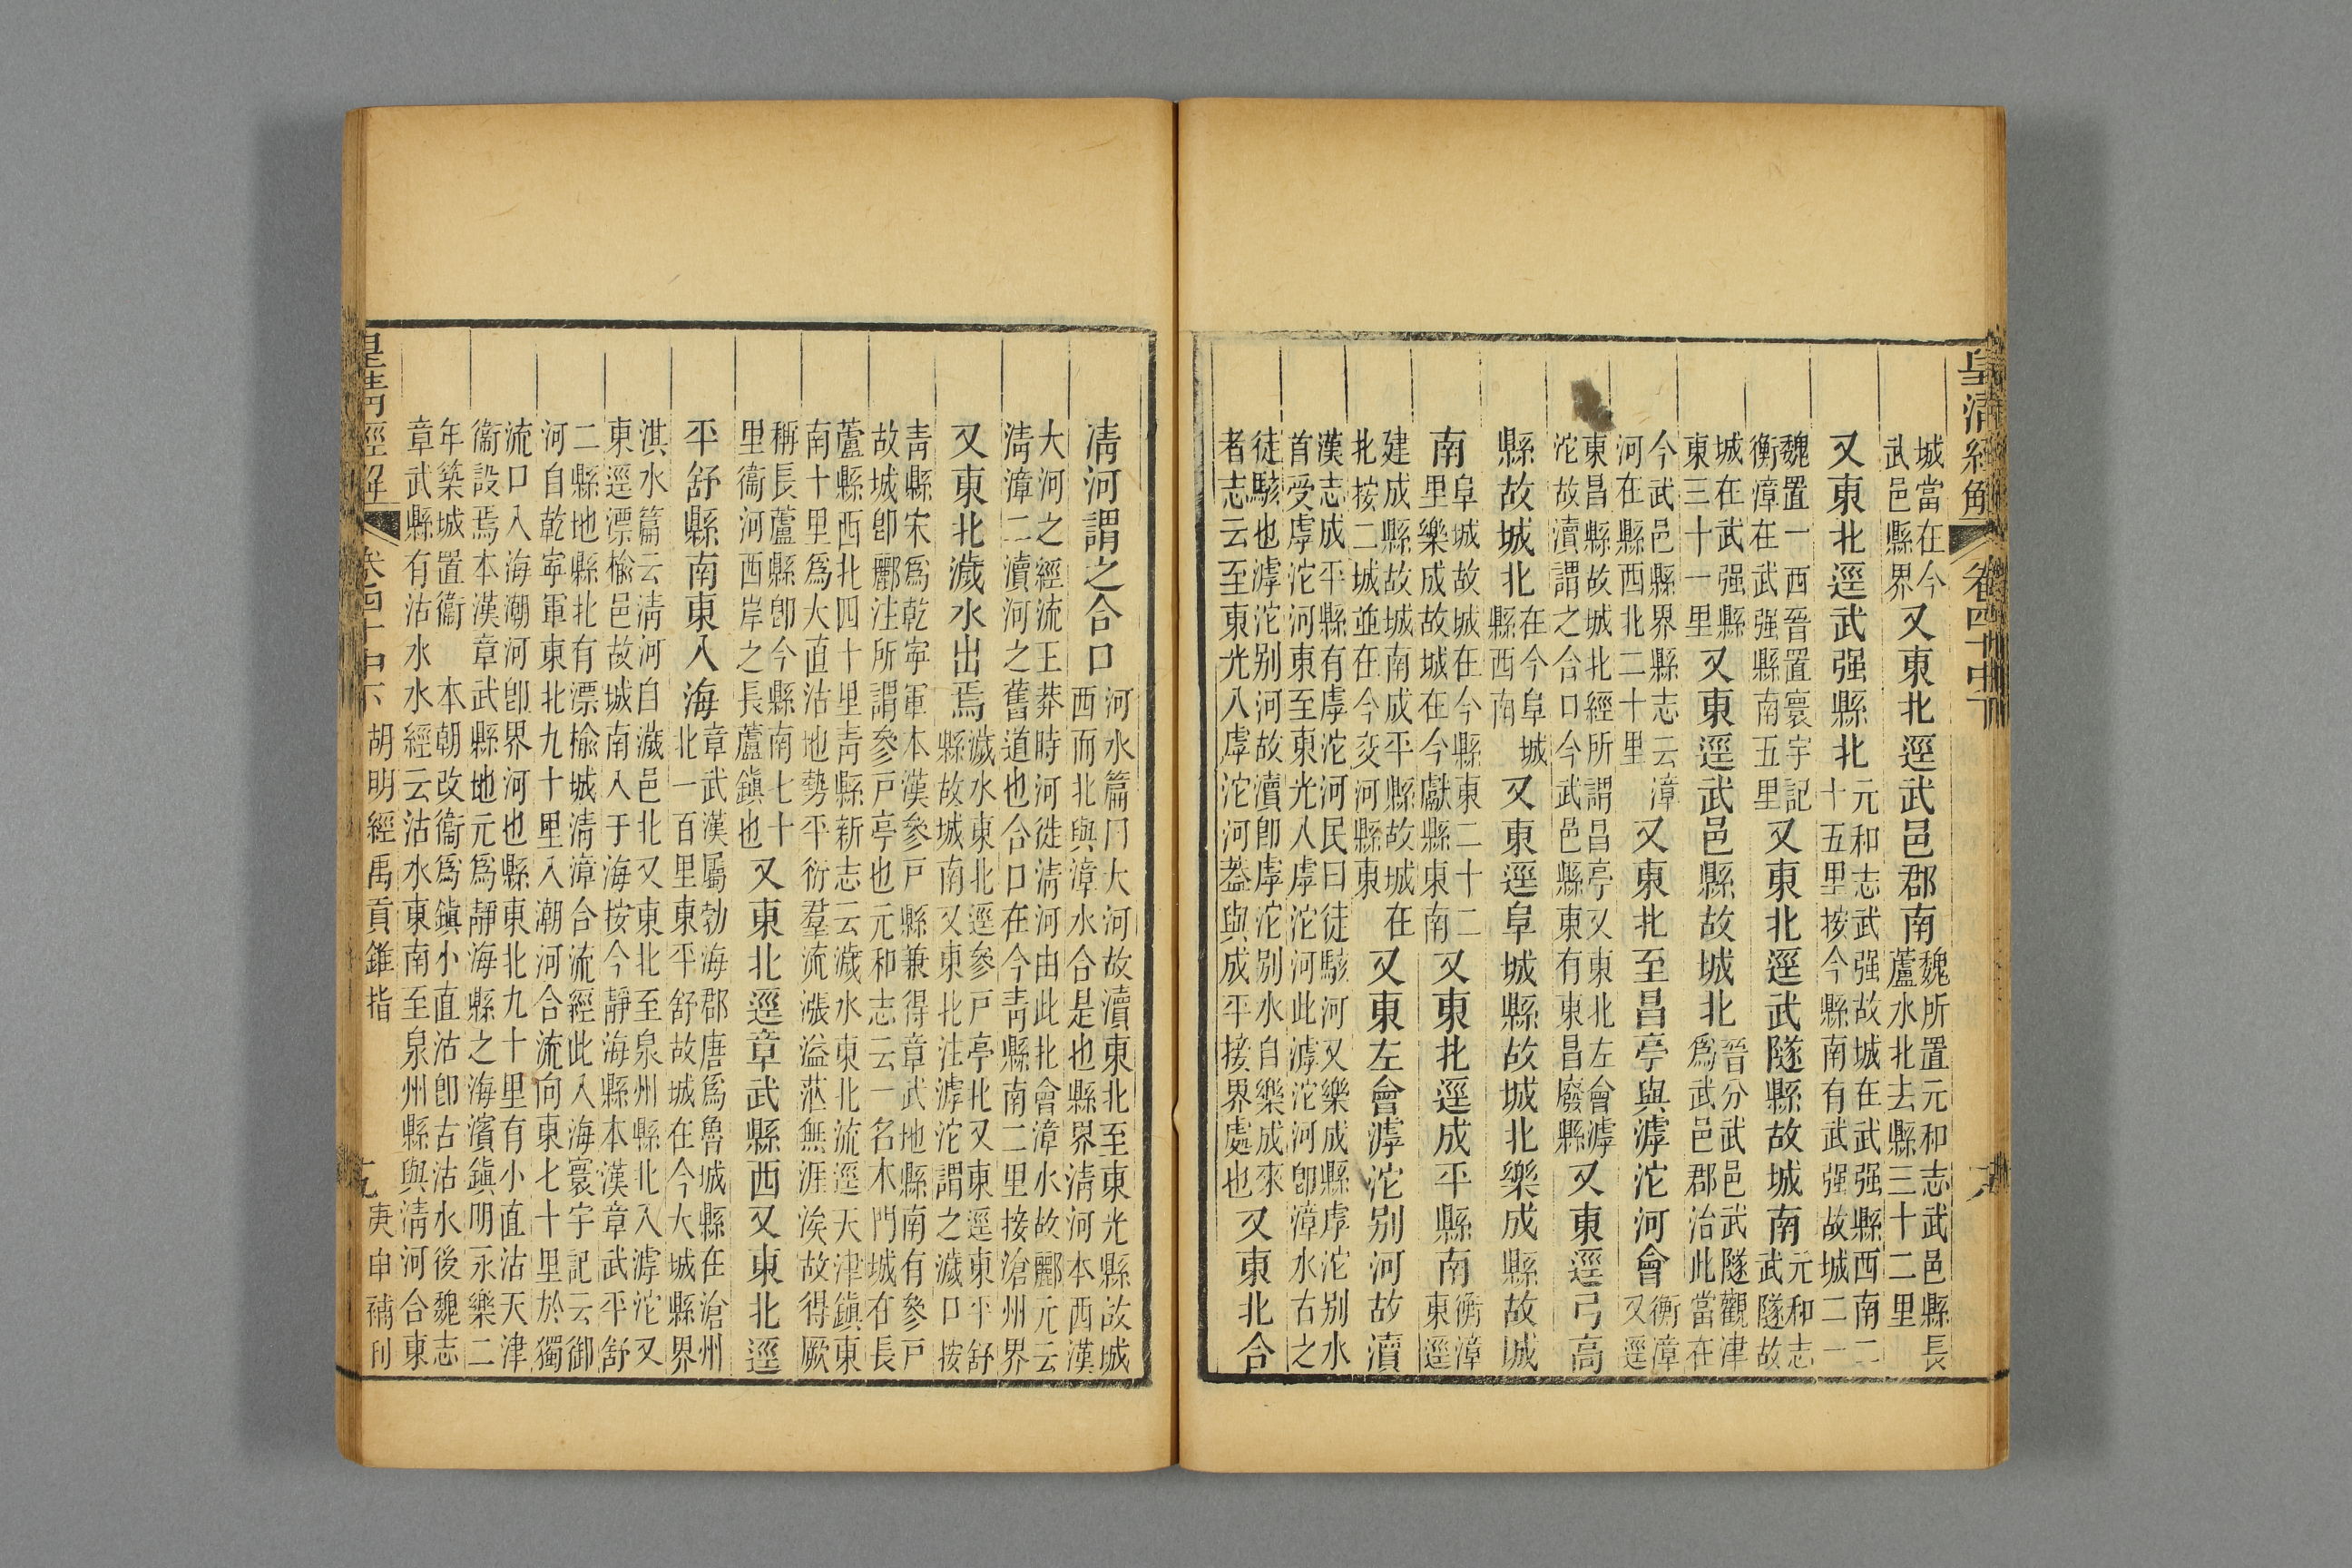 皇清經解
卷四十中下
城當在今
武邑縣界
又東北逕武邑郡南
魏所置元和志武邑縣長
蘆水北去縣三十二里
又東北逕武强縣北
元和志武强故城在武强縣西南二
十五里按今縣南有武强故城二一
魏置一西晉置寰宇記
衡漳在武强縣南五里
又東北逕武隧縣故城南
元和志
武隧故
城在武强縣
東三十一里
又東逕武邑縣故城北
晉分武邑武隧觀津
爲武邑郡治此當在
今武邑縣界縣志云漳
河在縣西北二十里
又東北至昌亭與滹沱河會
衡漳
又逕
東昌縣故城北經所謂昌亭又東北左會滹
沱故瀆謂之合口今武邑縣東有東昌廢縣
又東逕弓高
縣故城北
在今阜城
縣西南
又東逕阜城縣故城北樂成縣故城
南
阜城故城在今縣東二十二
里樂成故城在今獻縣東南
又東北逕成平縣南
衡漳
東逕
建成縣故城南成平縣故城在
北按二城並在今交河縣東
又東左會滹沱别河故瀆
漢志成平縣有虖沱河民曰徒駭河又樂成縣虖沱别水
首受虖沱河東至東光入虖沱河此滹沱河卽漳水右之
徒駭也滹沱别河故瀆卽虖沱别水自樂成來
者志云至東光入虖沱河葢與成平接界處也
又東北合
清河謂之合口
河水篇曰大河故瀆東北至東光縣故城
西而北與漳水合是也縣界清河本西漢
大河之經流王莽時河徙清河由此北會漳水故酈元云
清漳二瀆河之舊道也合口在今青縣南二里接滄州界
又東北濊水出焉
濊水東北逕參戸亭北又東逕東平舒
縣故城南又東北注滹沱謂之濊口按
青縣宋爲乾寧軍本漢參戸縣兼得章武地縣南有參戸
故城卽酈注所謂參戸亭也元和志云一名木門城在長
蘆縣西北四十里青縣新志云濊水東北流逕天津鎭東
南十里爲大直沽地勢平衍羣流漲溢茫無涯涘故得厥
稱長蘆縣卽今縣南七十
里衞河西岸之長蘆鎭也
又東北逕章武縣西又東北逕
平舒縣南東入海
章武漢屬勃海郡唐爲魯城縣在滄州
北一百里東平舒故城在今大城縣界
淇水篇云清河自濊邑北又東北至泉州縣北入滹沱又
東逕漂榆邑故城南入于海按今靜海縣本漢章武平舒
二縣地縣北有漂榆城清漳合流經此入海寰宇記云御
河自乾寧軍東北九十里入潮河合流向東七十里於獨
流口入海潮河卽界河也縣東北九十里有小直沽天津
衞設焉本漢章武縣地元爲靜海縣之海濱鎭明永樂二
年築城置衞　本朝改衞爲鎭小直沽卽古沽水後魏志
章武縣有沽水水經云沽水東南至泉州縣與清河合東
皇清經解
卷四十中下
胡明經禹貢錐指
庚申補刊